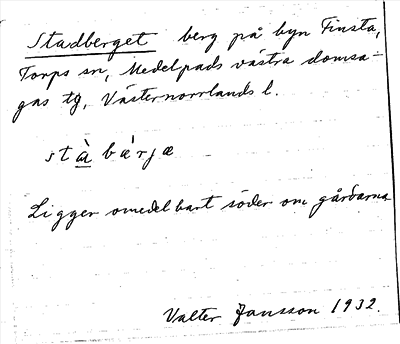 Stadberget berg på byn Finsta,
Torps sn, Medelpads västra domsa-
gas tg, Västernorrlands l.
stà bárjæ
Ligger omedelbart söder om gårdarna
Valter Jansson 1932.